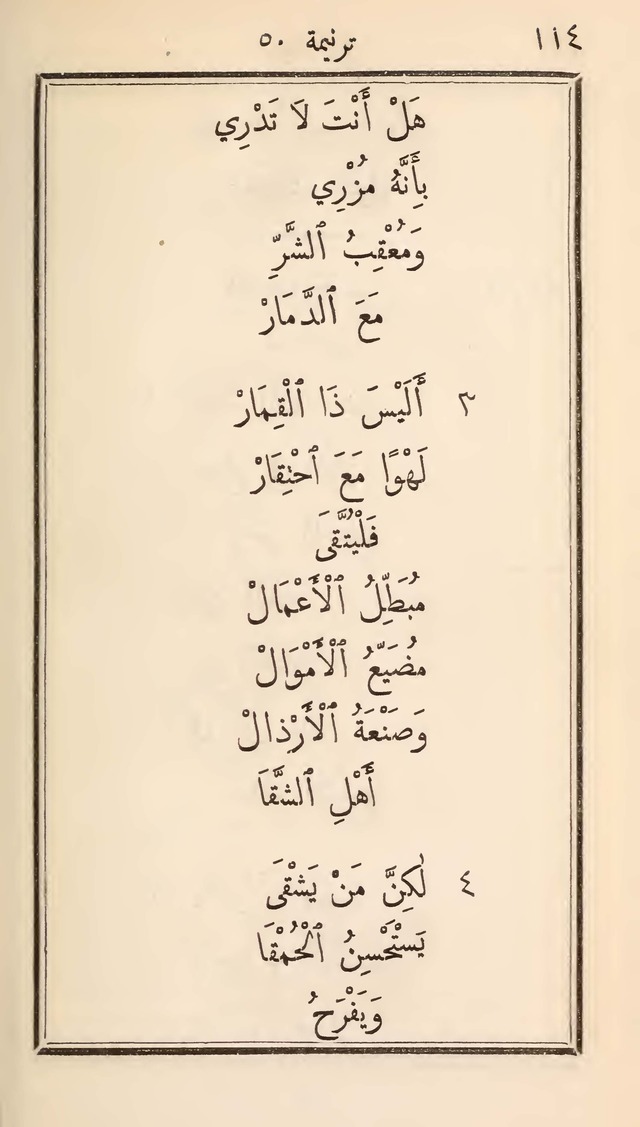 ١١٤ ترنيمة ٥٠
هَلْ أَنْتَ لَا تَدْرِي
بِأَنَّهُ مُزْرِي
وَمُعْقِبُ ٱلشَّرِّ
مَعَ ٱلدَّمَارْ
٣ أَلَيْسَ ذَا ٱلْقِمَارْ
لَهْوًا مَعَ ٱحْتِقَارْ
فَلْيُتَّقَى
مُبَطِّلُ ٱلْأَعْمَالْ
مُضَيِّعُ ٱلْأَمْوَالْ
وَصَنْعَةُ ٱلْأَرْذَالْ
أَهْلِ ٱلشَّقَا
٤ لٰكِنَّ مَنْ يَشْقَى
يَسْتَحْسِنُ ٱلْحُمْقَا
وَيَفْرَحُ